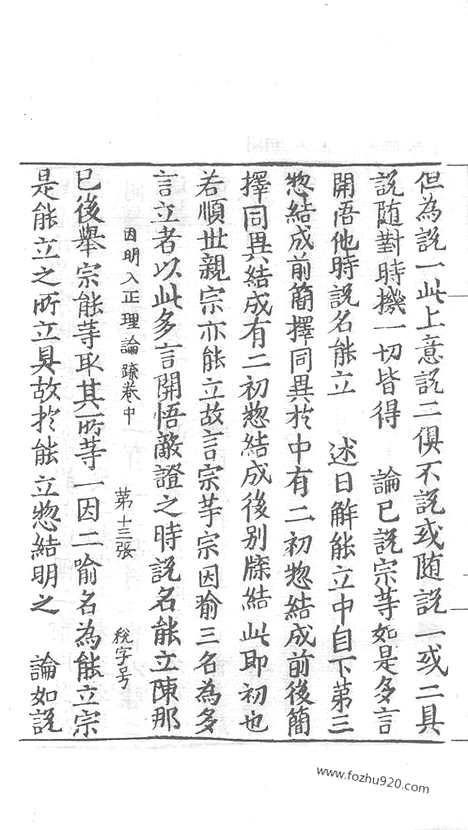 但為說一此上意說二俱不說或隨說一或二具
說隨對時機一切皆得　論已說宗䓁如是多言
開悟他時說名能立　述曰解能立中自下第三
惣結成前簡擇同異於中有二初惣結成前後簡
擇同異結成有二初惣結成後別牒結此即初也
若順世親宗亦能立故言宗䓁宗因喻三名為多
言立者以此多言開悟敵證之時說名能立陳那
因明入正理論疏卷中　第十三張　稅字号
已後舉宗能䓁取其所䓁一因二喻名為能立宗
是能立之所立具故於能立惣結明之　論如說
www.fozhu920.com